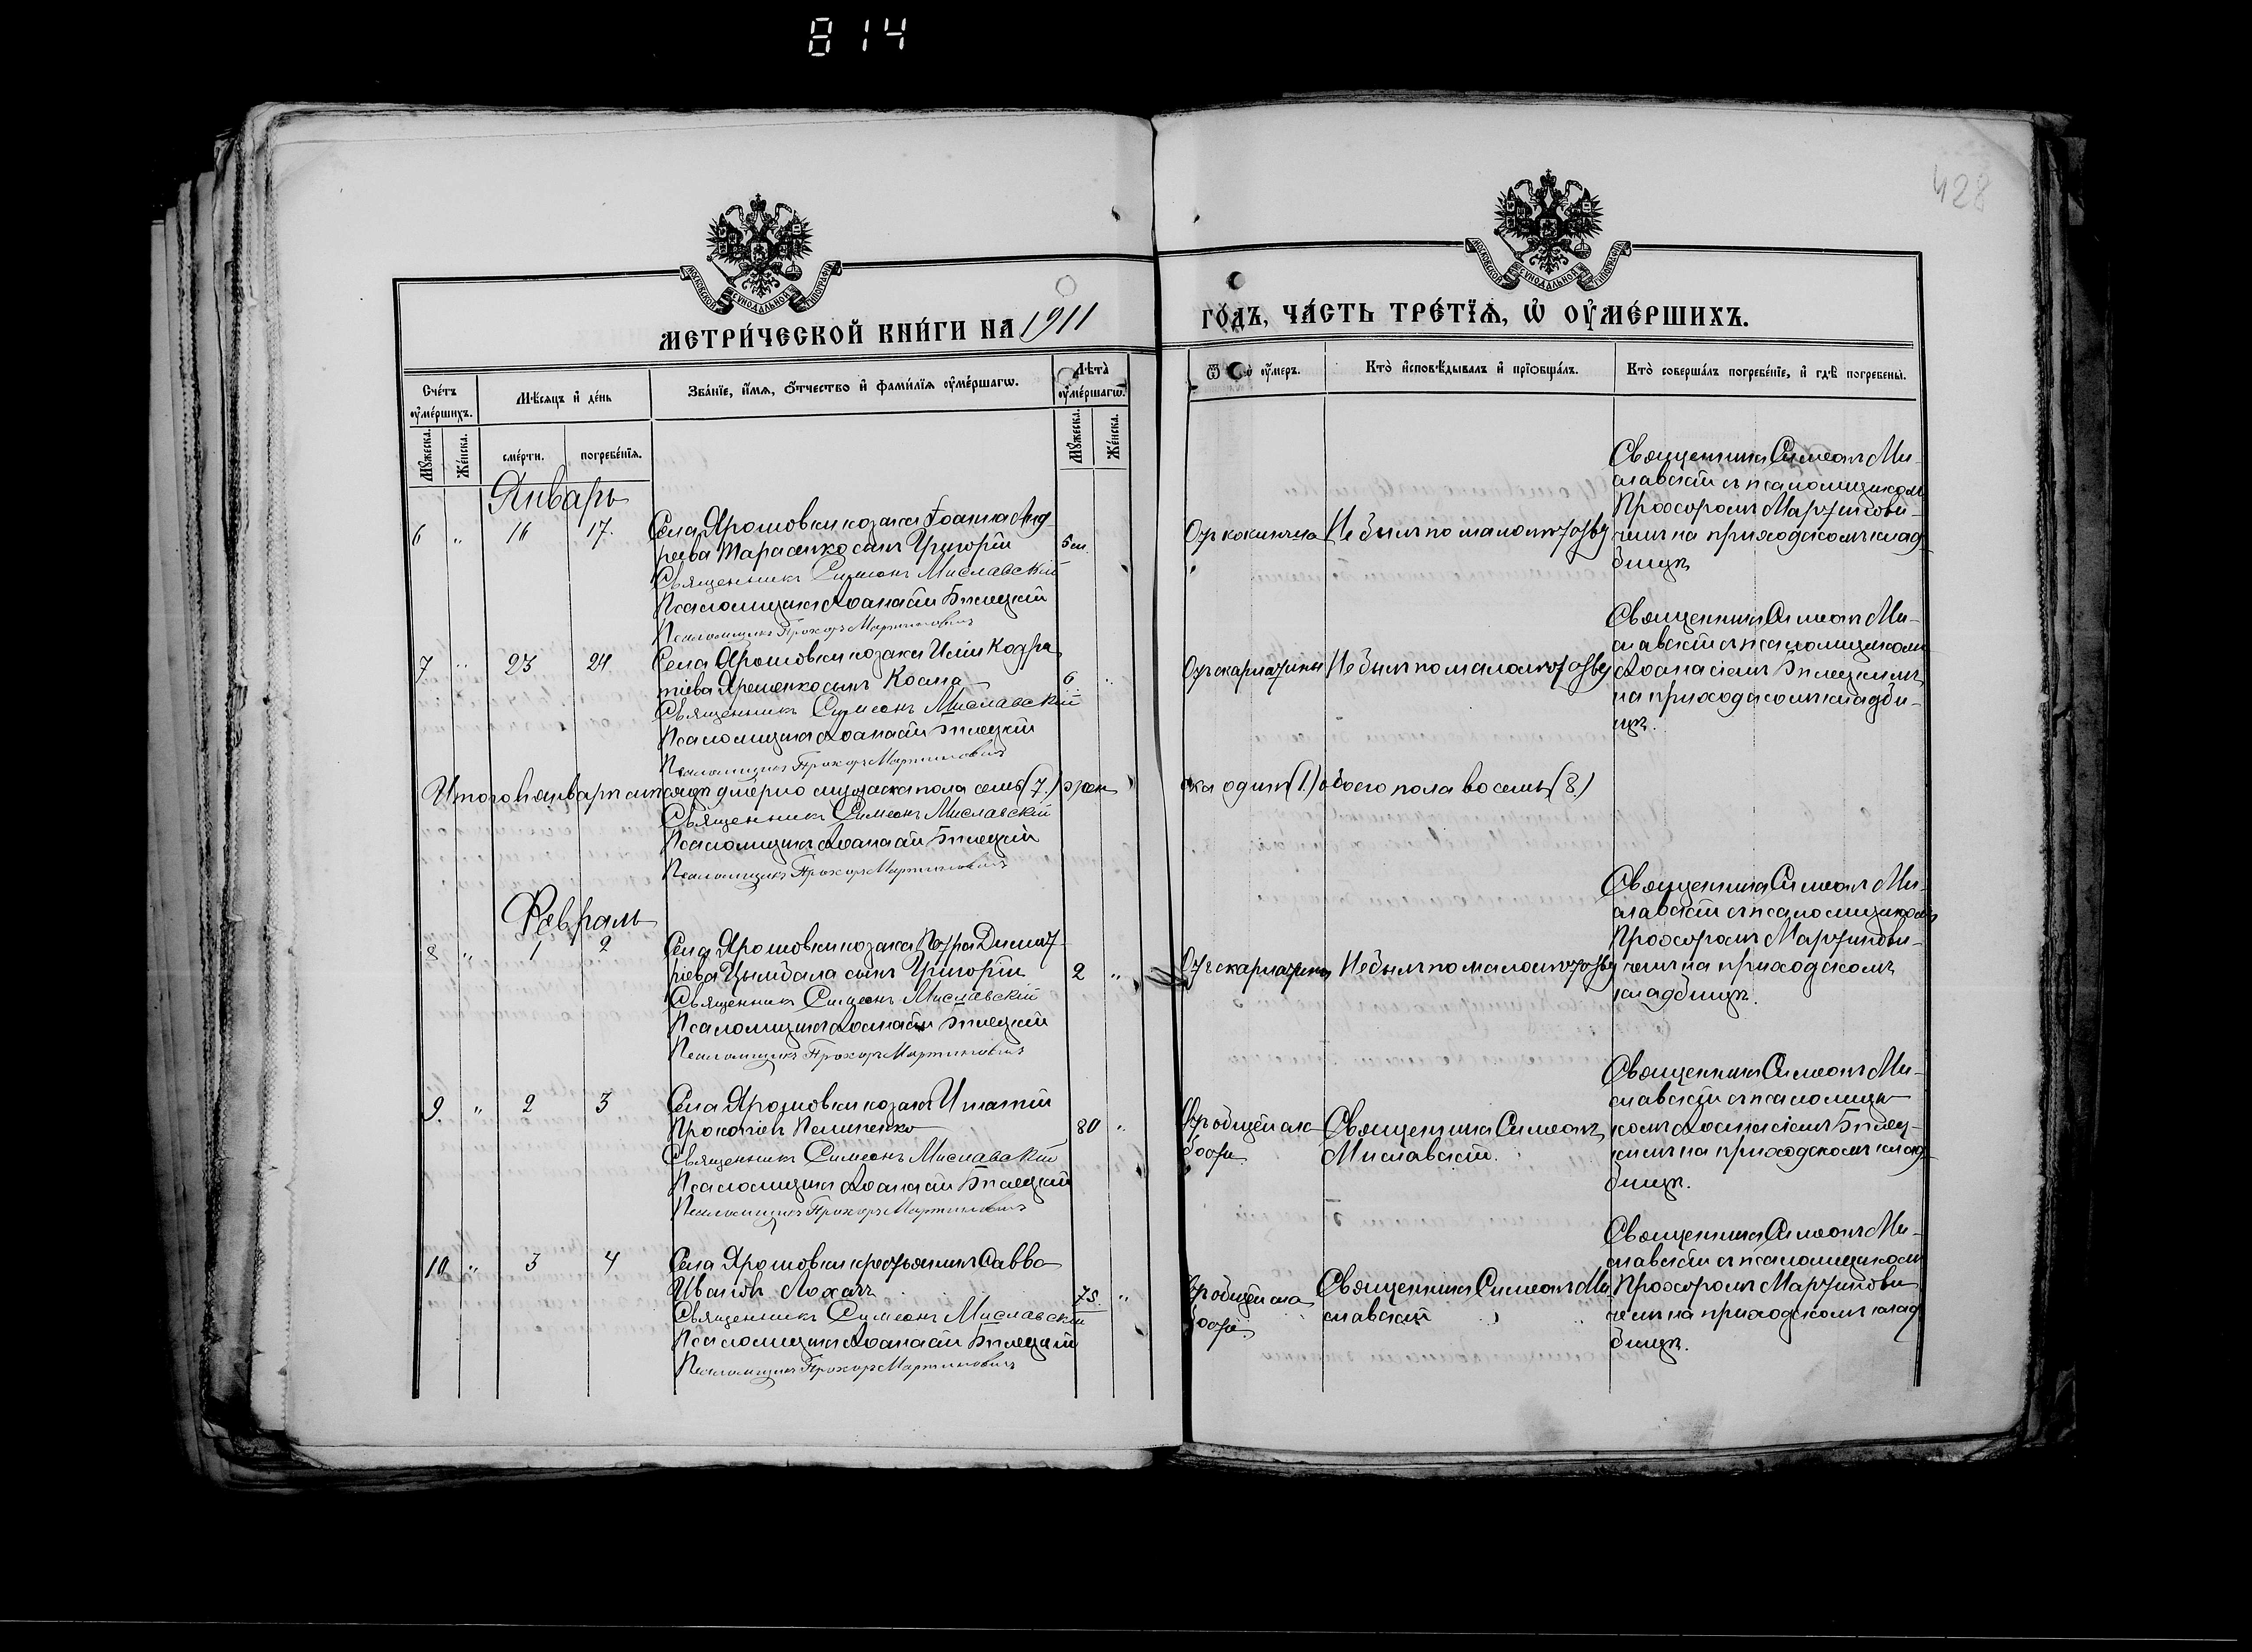 814
428
МОСКОВСКОЙ СѴНОДАЛЬНОЙ ТИПОГРАФІИ
МОСКОВСКОЙ СѴНОДАЛЬНОЙ ТИПОГРАФІИ
МЕТРИ́ЧЕСКОЙ КНИ́ГИ НА 1911
ГО́ДЪ, ЧА́СТЬ ТРЕ́ТЇѦ, Ѡ҆ ОУ҆МЕ́РШИХЪ.
Сче́тъ оу҆ме́ршихъ.
Мѣ́сяцъ и҆ де́нь
Зва́нїе, и҆́мѧ, ѻ҆́тчество и҆ фами́лїѧ оу҆ме́ршагѡ.
Лѣ́та оу҆ме́ршагѡ.
Ѿ оу҆́меръ.
Кто̀ и҆сповѣ́дывалъ и҆ прїѡбща́лъ.
Кто̀ соверша́лъ погребе́нїе, и҆ гдѣ̀ погребены̀.
Мꙋ́жеска.
Же́нска.
сме́рти.
погребе́нїѧ.
Мꙋ́жеска.
Же́нска.
Январь
6 " 16 17.
Села Ярошовки козака Іоанна Анд-
реева Тарасенко сынъ Григорій
5 м.
Священникъ Симеонъ Миславскій
Псаломщикъ Аѳанасій Бѣлецкій
Псаломщикъ Прохоръ Мартиновичъ
Отъ коклюша
Не былъ по малолѣтству
Священникъ Симеонъ Ми-
славскій съ псаломщикомъ
Прохоромъ Мартинови-
чемъ на приходскомъ клад-
бищѣ
7 " 23 24
Села Ярошовки козака Иліи Кодра
тіева Ярешенко сынъ Косма
6 "
Священникъ Симеонъ Миславскій
Псаломщикъ Аѳанасій Бѣлецкій
Псаломщикъ Прохоръ Мартиновичъ
Отъ скарлатины
Не былъ по малолѣтству
Священникъ Симеонъ Ми-
славскій съ псаломщикомъ
Аѳанасіемъ Бѣлецкимъ
на приходскомъ кладби-
щѣ.
Итого въ январѣ мѣсяцѣ умерло мужеска пола семь (7.) жен
ска одинъ (1.) обоего пола восемь (8.)
Священникъ Симеонъ Миславскій
Псаломщикъ Аѳанасій Бѣлецкій
Псаломщикъ Прохоръ Мартиновичъ
Февраль
8 " 1 2
Села Ярошовки козака Петра Димит-
ріева Цымбала сынъ Григорій
2 "
Священникъ Симеонъ Миславскій
Псаломщикъ Аѳанасій Бѣлецкій
Псаломщикъ Прохоръ Мартиновичъ
Отъ скарлатины
Не былъ по малолѣтству
Священникъ Симеонъ Ми-
славскій съ псаломщикомъ
Прохоромъ Мартинови-
чемъ на приходскомъ
кладбищѣ.
9. " 2 3
Села Ярошовки козакъ Игнатій
Прокопіевъ
80 "
Священникъ Симеонъ Миславскій
Псаломщикъ Аѳанасій Бѣлецкій
Псаломщикъ Прохоръ Мартиновичъ
Отъ общей сла
бости
Священникъ Симеонъ
Миславскій.
Священникъ Симеонъ Ми-
славскій съ псаломщи
комъ Аѳанасіемъ Бѣлец-
кимъ на приходскомъ клад-
бищѣ.
10. " 3 4
Села Ярошовки крестьянинъ Савва
Ивановъ Лохачъ
75. "
Священникъ Симеонъ Миславскій
Псаломщикъ Аѳанасій Бѣлецкій
Псаломщикъ Прохоръ Мартиновичъ
Отъ общей сла
бости
Священникъ Симеонъ Ми
славскій
Священникъ Симеонъ Ми-
славскій съ псаломщикомъ
Прохоромъ Мартинови
чемъ на приходскомъ клад
бищѣ.